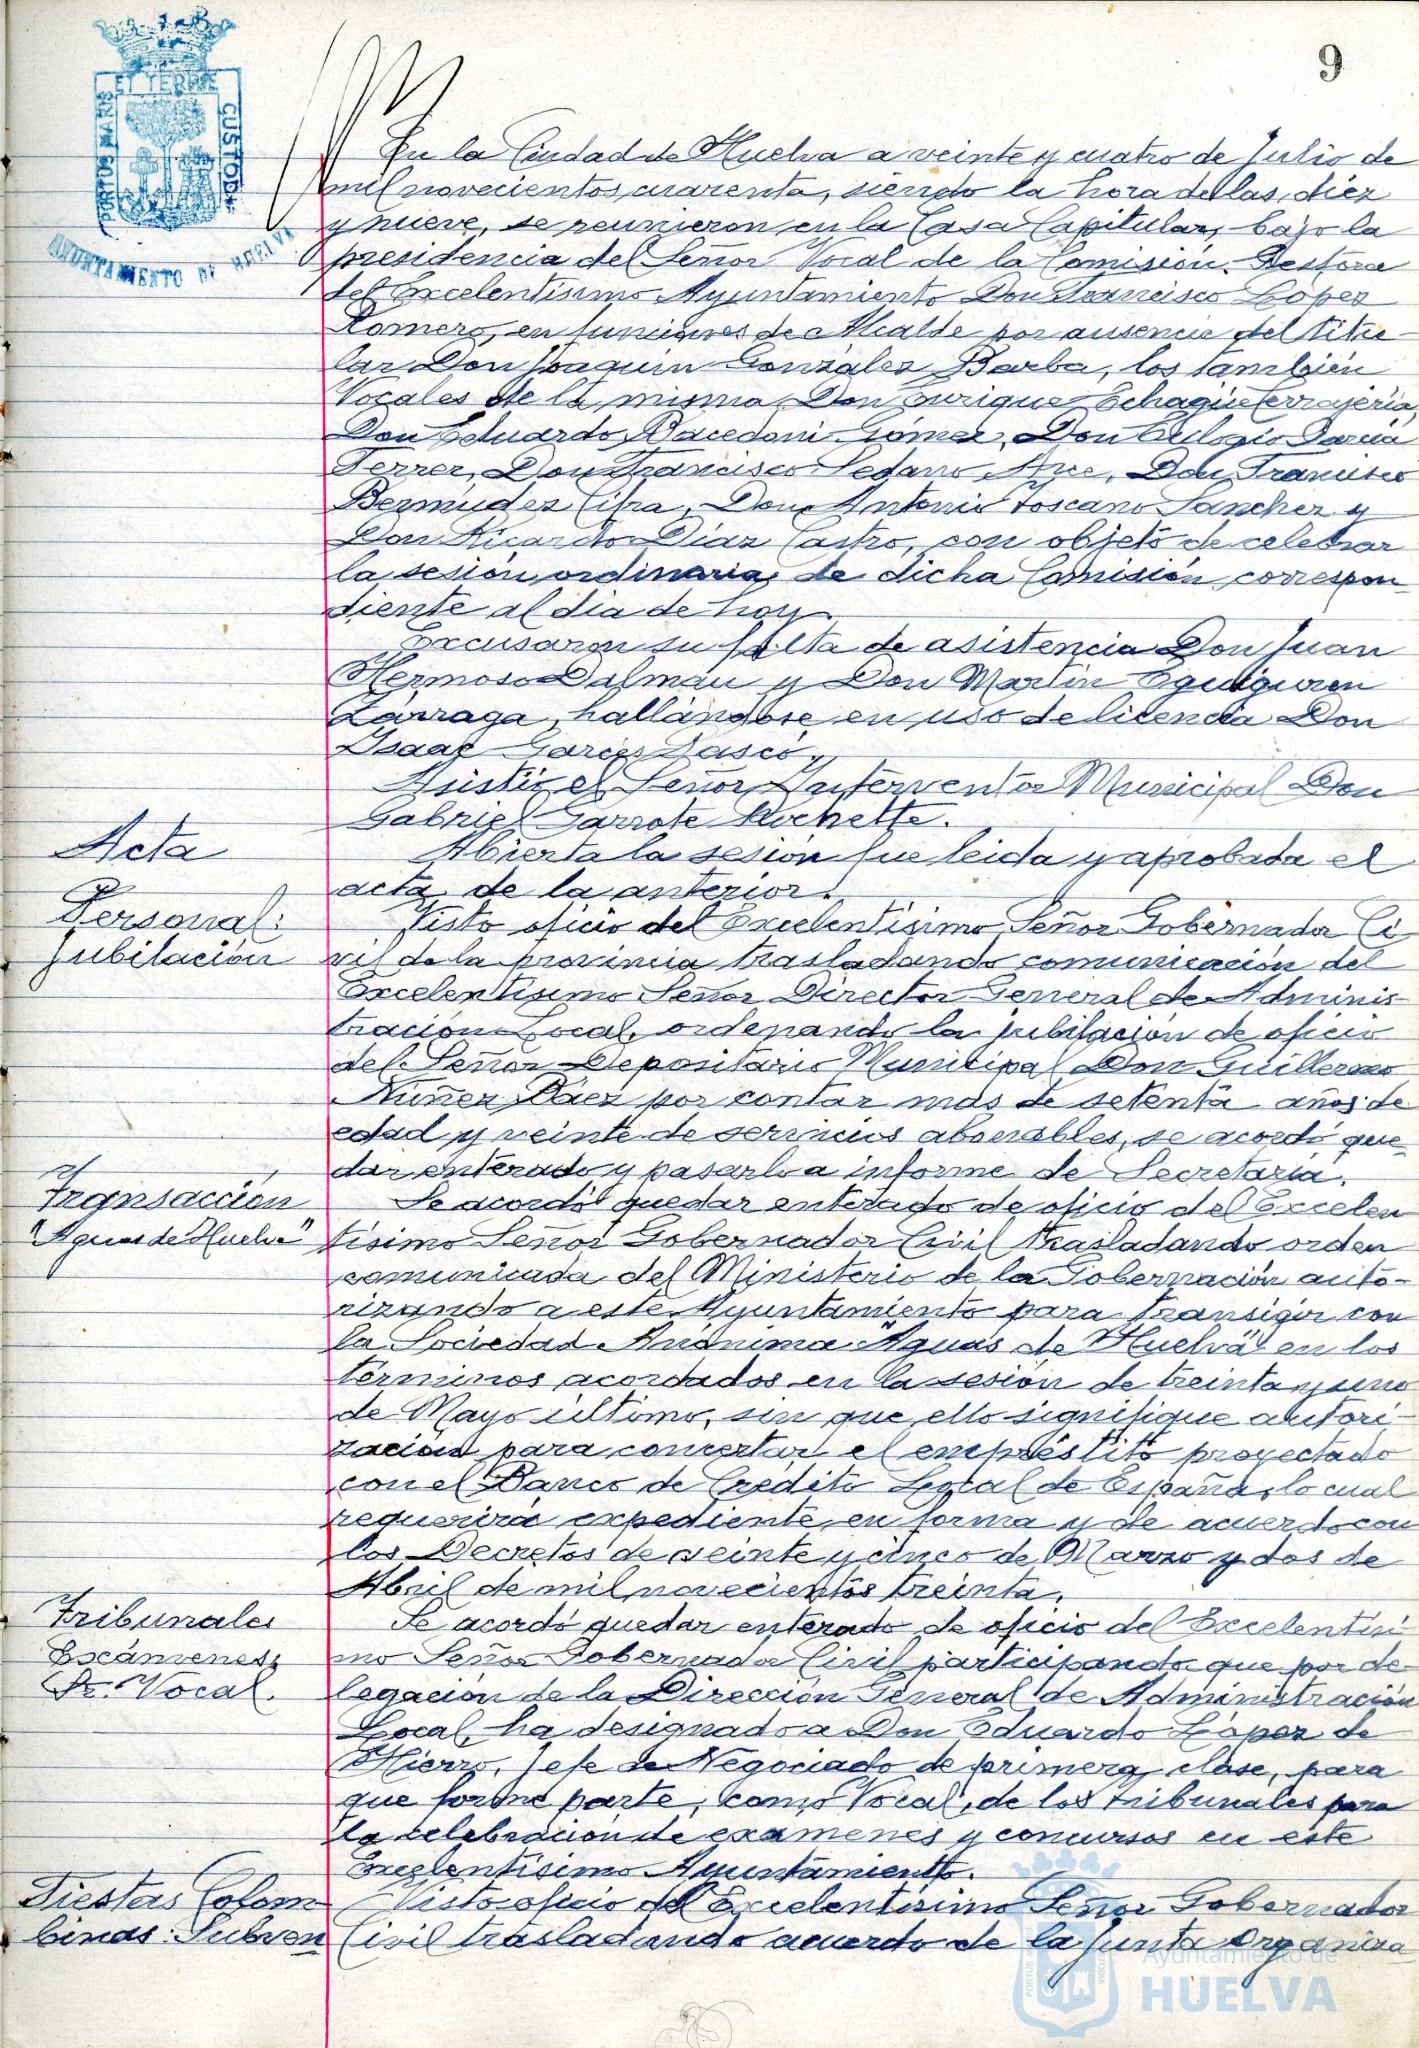 9
PORTUS MARIS
ET TERRÆ
CUSTODIA
AYUNTAMIENTO DE HUELVA
En la Ciudad de Huelva a veinte y cuatro de Julio de
mil novecientos cuarenta, siendo la hora de las diez
y nueve, se reunieron en la Casa Capitular, bajo la
presidencia del Señor Vocal de la Comisión Gestora
del Excelentísimo Ayuntamiento Don Francisco López
Romero, en funciones de Alcalde por ausencia del titu-
lar Don Joaquin González Barba, los también
Vocales de la misma Don Enrique Echagüe Cerrajería,
Don Eduardo Gómez, Don Eulogio García
Ferrer, Don Francisco Sedano Arce, Don Francisco
Bermúdez Cifra, Don Antonio Toscano Sanchez y
Don Ricardo Díaz Castro, con objeto de celebrar
la sesión ordinaria de dicha Comisión correspon-
diente al dia de hoy.
Excusaron su falta de asistencia Don Juan
Hermoso Dalmau y Don Martín Eguiguren
Zárraga, hallándose en uso de licencia Don
Isaac
Asistió el Señor Interventor Municipal Don
Gabriel Garrote Rochette.
Acta
Abierta la sesión fue leida y aprobada el
acta de la anterior.
Personal:
Jubilación
Visto oficio del Excelentísimo Señor Gobernador Ci-
vil de la provincia trasladando comunicación del
Excelentísimo Señor Director General de Adminis-
tración Local, ordenando la jubilación de oficio
del Señor Depositario Municipal Don Guillermo
Nuñez Báez por contar mas de setenta años de
edad y veinte de servicios abonables, se acordó que-
dar enterado y pasarlo a informe de Secretaría.
Transacción
"Aguas de Huelva"
Se acordó quedar enterado de oficio del Excelen
tísimo Señor Gobernador Civil trasladando orden
comunicada del Ministerio de la Gobernación auto-
rizando a este Ayuntamiento para transigir con
la Sociedad Anónima "Aguas de Huelva" en los
términos acordados en la sesión de treinta y uno
de Mayo último, sin que ello signifique autori-
zación para concertar el empréstito proyectado
con el Banco de Crédito Local de España, lo cual
requerirá expediente en forma y de acuerdo con
los Decretos de veinte y cinco de Marzo y dos de
Abril de mil novecientos treinta.
Tribunales
Escámenes;
Sr. Vocal.
Se acordó quedar enterado de oficio del Excelentísi
mo Señor Gobernador Civil participando que por de-
legación de la Dirección General de Administración
Local, ha designado a Don Eduardo López de
Hierro, Jefe de Negociado de primera clase, para
que forme parte, como Vocal, de los tribunales para
la celebración de examenes y concursos en este
Excelentísimo Ayuntamiento.
Fiestas Colom
binas: Subven
Visto oficio del Excelentísimo Señor Gobernador
Civil trasladando acuerdo de la Junta Organiza-
Ayuntamiento de
HUELVA